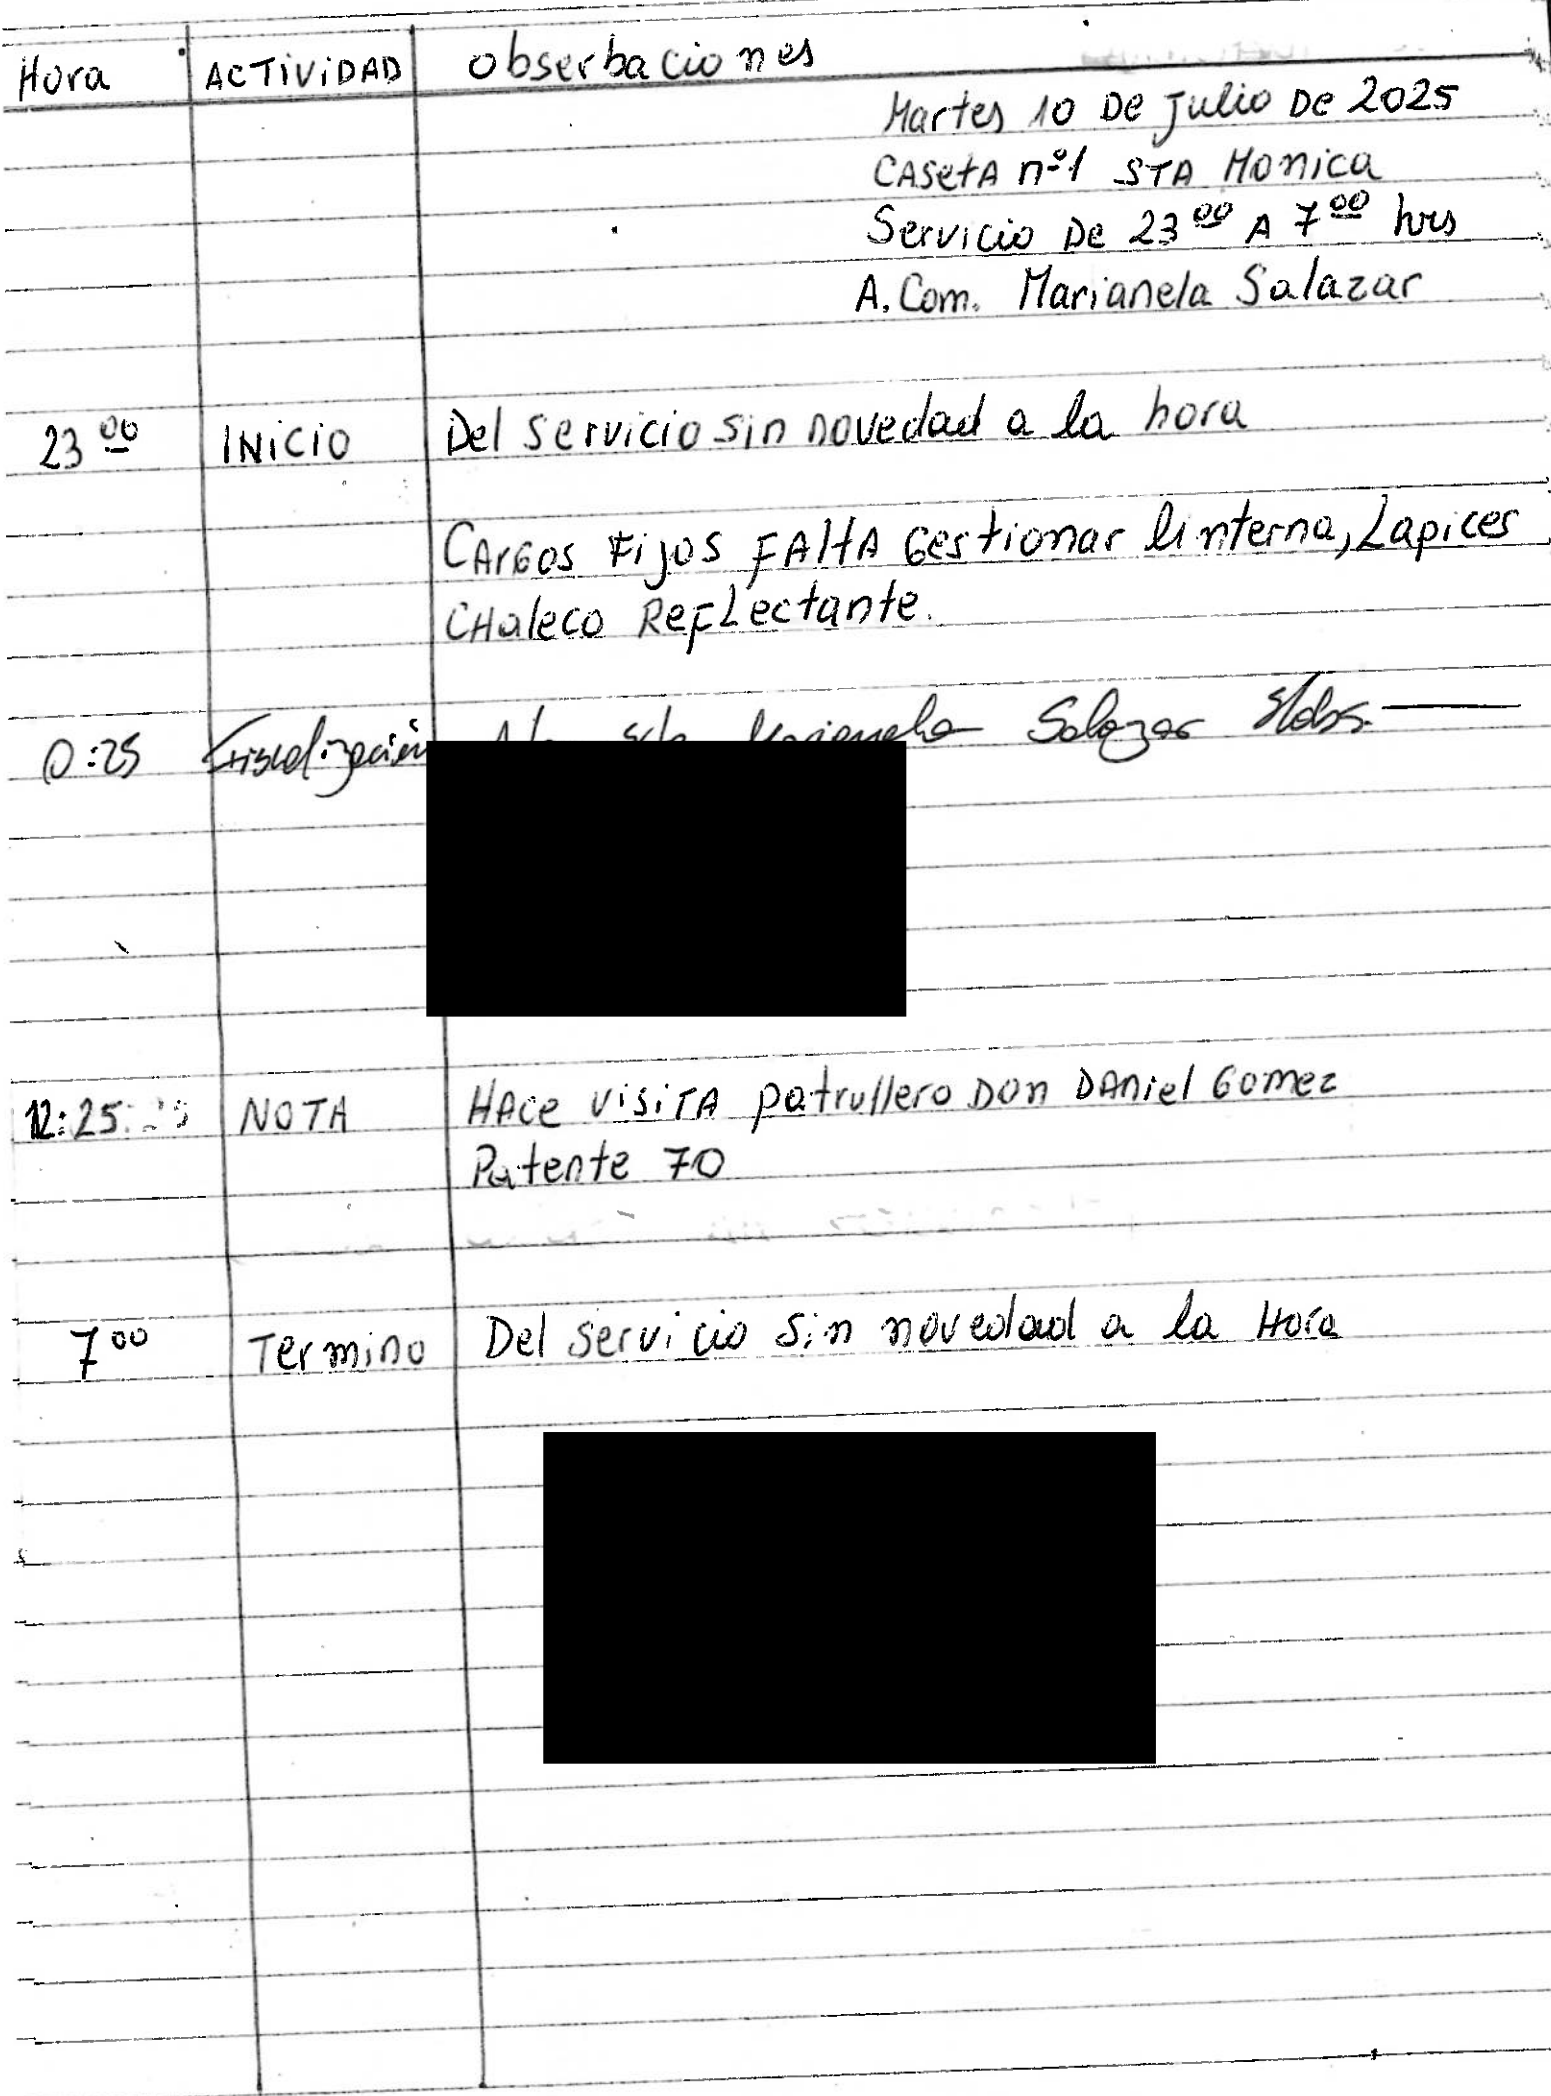 Hora ACTIVIDAD obserbaciones
Martes 10 De Julio De 2025
CASetA nº1 STA Monica
Servicio De 23 00 A 7 00 hrs
A. Com. Marianela Salazar
23 00 INICIO Del servicio sin novedad a la hora
CArGos Fijos FAltA Gestionar linterna, Lapices
CHaleco ReFLectante.
0:25 Fiscalización Marianela Salazar S/obs.
12:25 NOTA HAce visiTA patrullero Don DAniel Gomez
Patente 70
7 00 Termino Del servicio sin novedad a la Hora